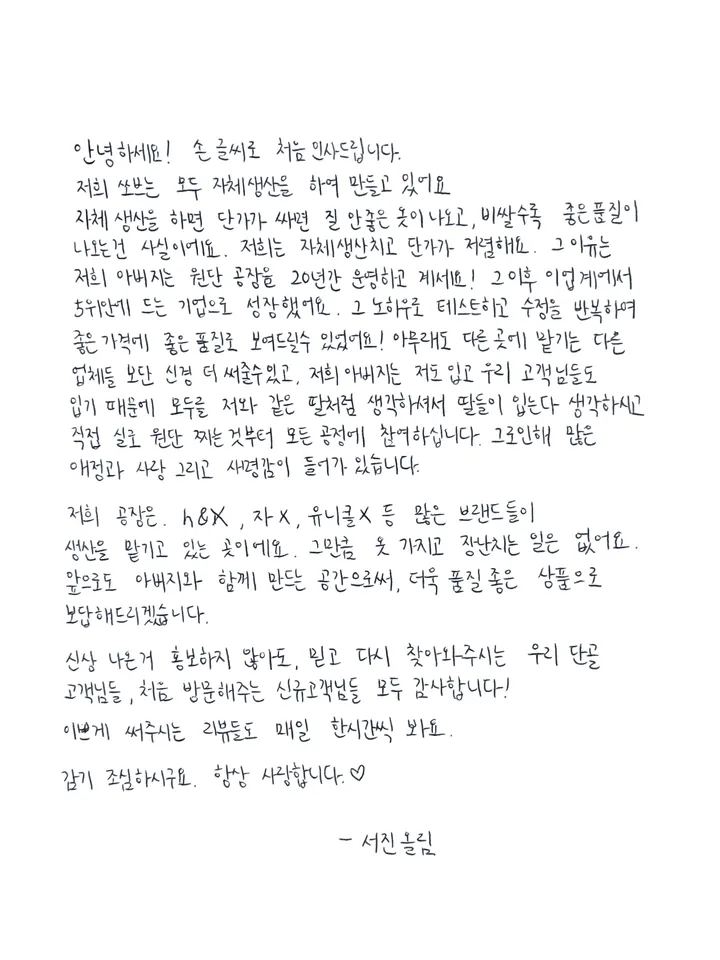 안녕하세요! 손 글씨로 처음 인사드립니다.
저희 쏘브는 모두 자체생산을 하여 만들고 있어요
자체 생산을 하면 단가가 싸면 질 안좋은 옷이 나오고, 비쌀수록 좋은품질이
나오는건 사실이에요. 저희는 자체생산치고 단가가 저렴해요. 그 이유는
저희 아버지는 원단 공장을 20년간 운영하고 계세요! 그 이후 이 업계에서
5위안에 드는 기업으로 성장했어요. 그 노하우로 테스트하고 수정을 반복하여
좋은 가격에 좋은 품질로 보여드릴수 있었어요! 아무래도 다른 곳에 맡기는 다른
업체들 보단 신경 더 써줄수있고, 저희 아버지는 저도 입고 우리 고객님들도
입기 때문에 모두를 저와 같은 딸처럼 생각하셔서 딸들이 입는다 생각하시고
직접 실로 원단 찌는것부터 모든 공정에 참여하십니다. 그로인해 많은
애정과 사랑 그리고 사명감이 들어가 있습니다.
저희 공장은. h&X , 자X , 유니클X 등 많은 브랜드들이
생산을 맡기고 있는 곳이에요. 그만큼 옷 가지고 장난치는 일은 없어요.
앞으로도 아버지와 함께 만드는 공간으로써, 더욱 품질 좋은 상품으로
보답해드리겠습니다.
신상 나온거 홍보하지 않아도, 믿고 다시 찾아와주시는 우리 단골
고객님들, 처음 방문해주는 신규고객님들 모두 감사합니다!
이쁘게 써주시는 리뷰들도 매일 한시간씩 봐요.
감기 조심하시구요. 항상 사랑합니다.♡
- 서진올림